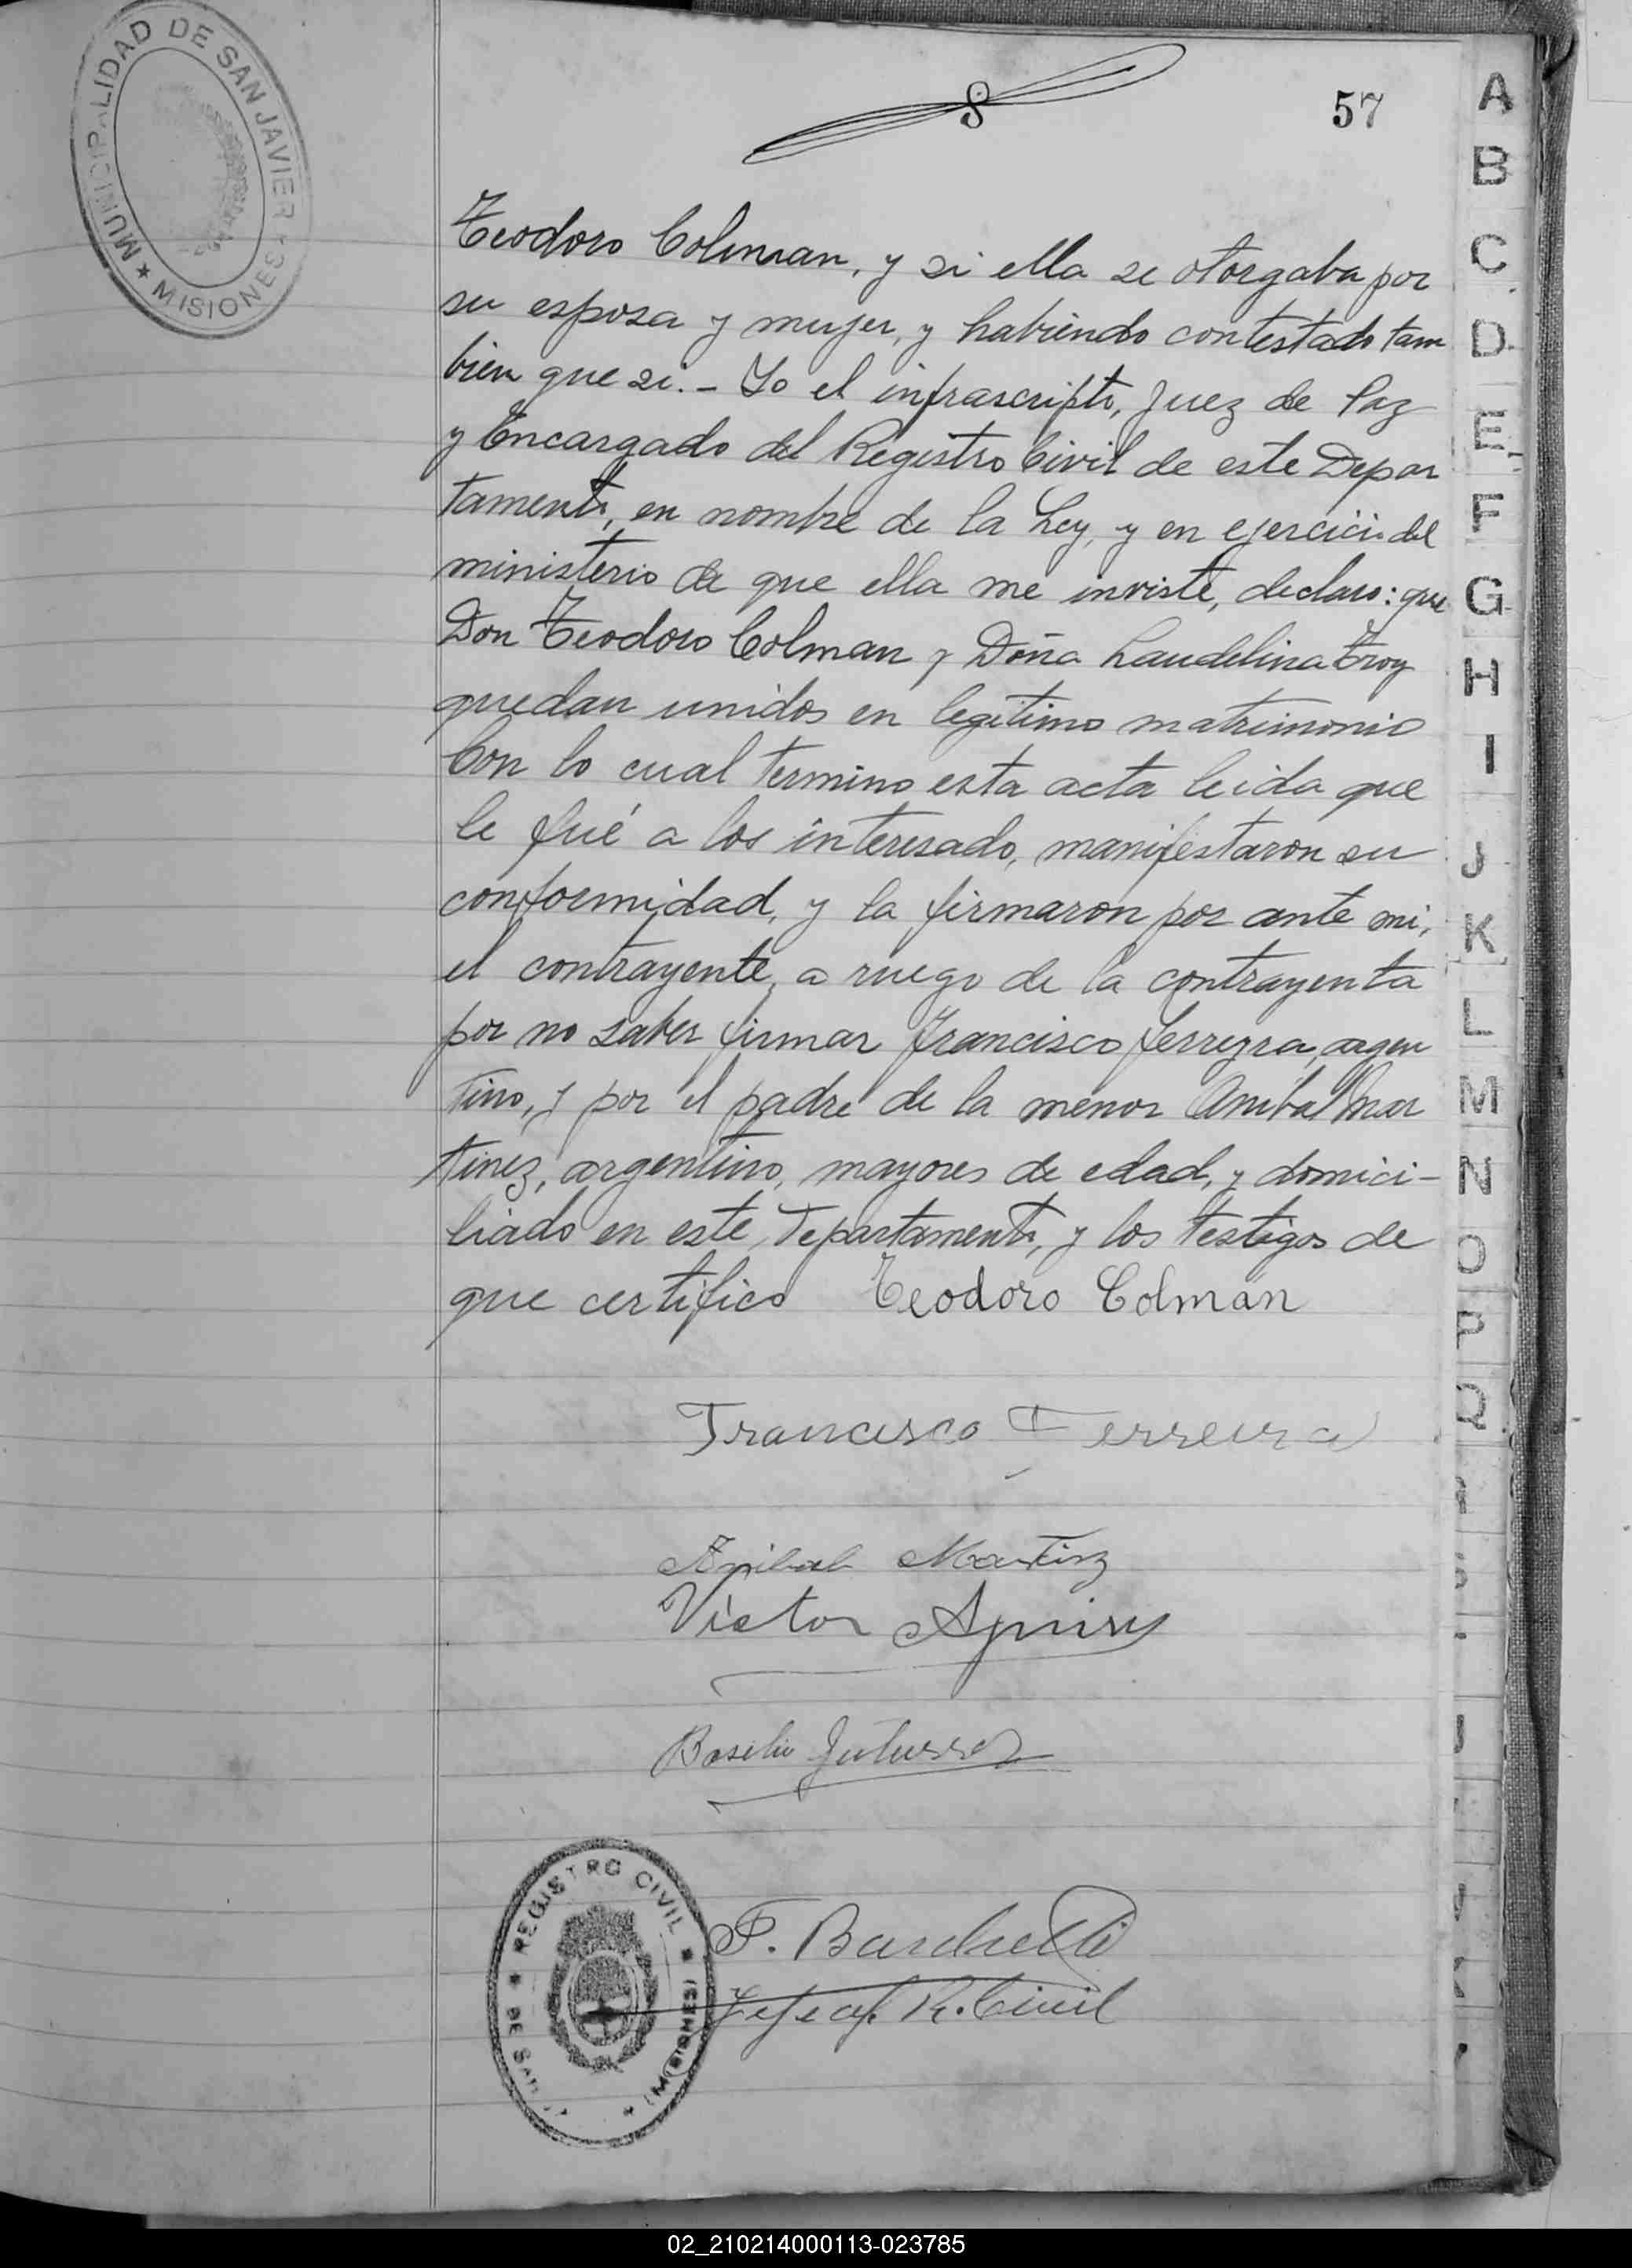 MUNICIPALIDAD DE SAN JAVIER
MISIONES
8
57
Teodoro Colman, y si ella se otorgaba por
su esposa y mujer, y habiendo contestado tam
bien que si.- Yo el infrascripto, Juez de Paz
y Encargado del Registro Civil de este Depar
tamento, en nombre de la Ley, y en ejercicio del
ministerio de que ella me inviste, declaro: que
Don Teodoro Colman y Doña Laudelina
quedan unidos en legitimo matrimonio
Con lo cual termino esta acta leida que
le fué a los interesado, manifestaron su
conformidad, y la firmaron por ante mi,
el contrayente, a ruego de la contrayenta
por no saber firmar Francisco Ferreyra, argen
tino, y por el padre de la menor Anibal Mar
tinez, argentino, mayores de edad, y domici-
liado en este, Departamento, y los testigos de
que certifico Teodoro Colmán
Francisco Ferreira
Anibal Martinz
Victor
Basilio
REGISTRO CIVIL
DE SAN
(MISIONES)
F.
Jefe of. R. Civil
A
B
C
D
E
F
G
H
I
J
K
L
M
N
O
P
Q
02_210214000113-023785